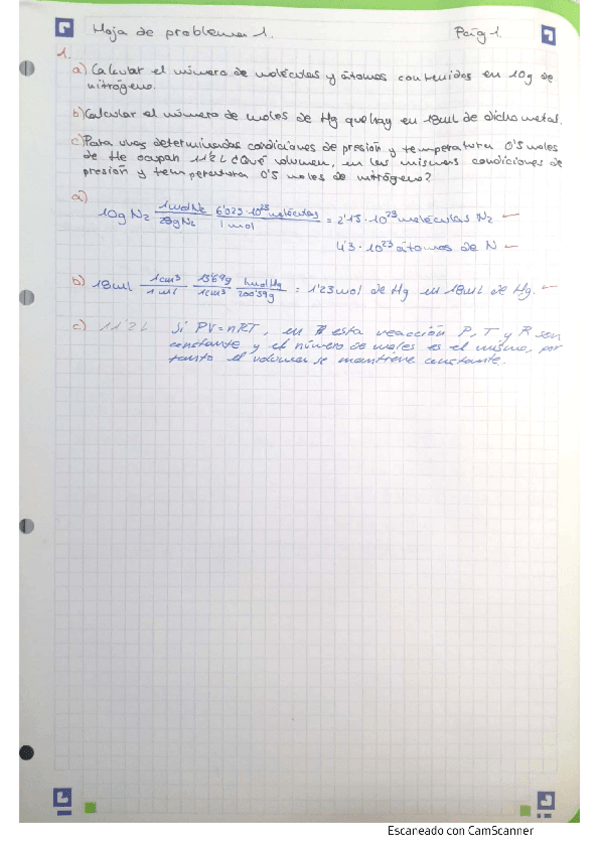 Hoja de problemas 1. Pág 1.
1.
a) Calcular el número de moléculas y átomos contenidos en 10g de
nitrógeno.
b) Calcular el número de moles de Hg que hay en 18mL de dicho metal.
c) Para unas determinadas condiciones de presión y temperatura 0'5 moles
de He ocupan 11'2 L ¿Qué volumen, en las mismas condiciones de
presión y temperatura 0'5 moles de nitrógeno?
a)
10g N2 1mol N2 / 28g N2 6'023·10^23 moléculas / 1 mol = 2'15·10^23 moléculas N2
4'3·10^23 átomos de N
b) 18ml 1cm^3 / 1 ml 13'69g / 1cm^3 1mol Hg / 200'59g = 1'23mol de Hg en 18mL de Hg.
c) 11'2 L Si PV=nRT, en esta reacción P, T y R son
constante y el número de moles es el mismo, por
tanto el volumen se mantiene constante.
Escaneado con CamScanner